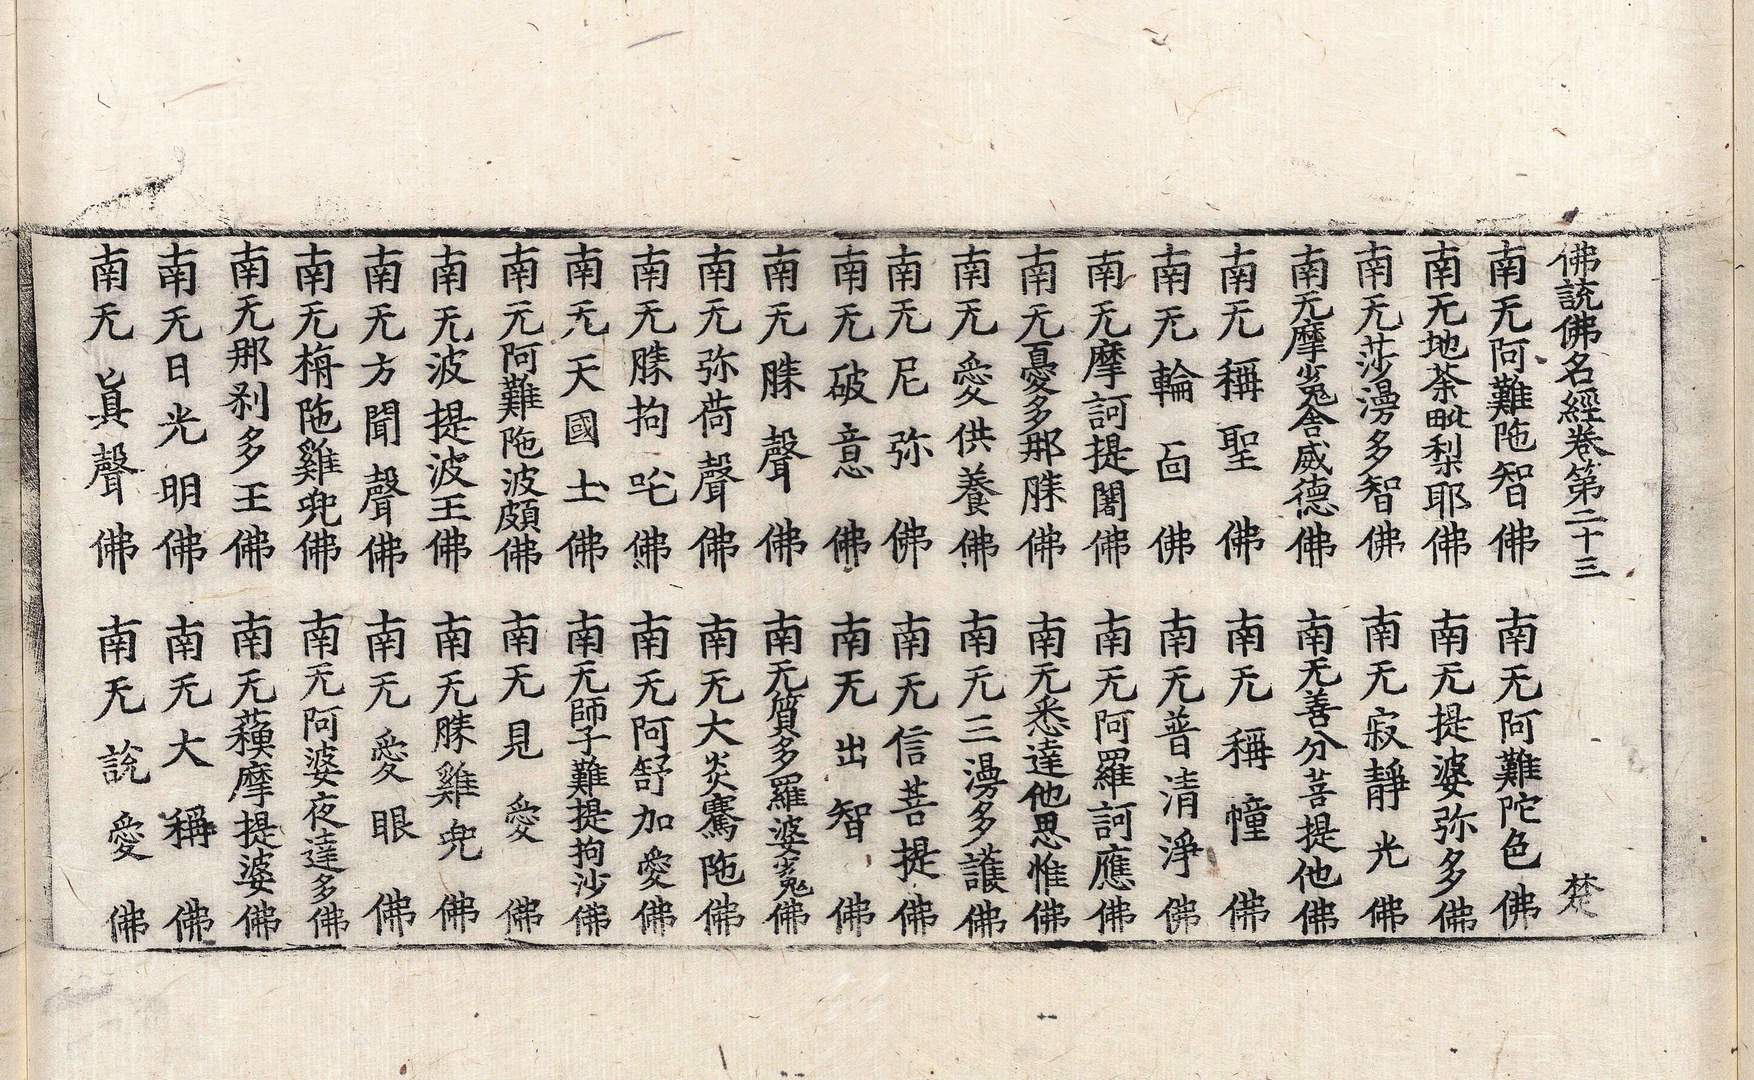 佛説佛名經卷第二十三 楚
南无阿難陁智佛 南无阿難陀色佛
南无地荼毗梨耶佛 南无提婆弥多佛
南无莎漫多智佛 南无寂靜光佛
南无摩㝹舍威德佛 南无善分菩提他佛
南无稱聖佛 南无稱幢佛
南无輪面佛 南无普清淨佛
南无摩訶提闍佛 南无阿羅訶應佛
南无憂多那勝佛 南无悉達他思惟佛
南无愛供養佛 南无三漫多護佛
南无尼弥佛 南无信菩提佛
南无破意佛 南无出智佛
南无勝聲佛 南无質多羅婆㝹佛
南无弥荷聲佛 南无大炎騫陁佛
南无勝拘吒佛 南无阿舒加愛佛
南无天國土佛 南无師子難提拘沙佛
南无阿難陁波頗佛 南无見愛佛
南无波提波王佛 南无勝雞兜佛
南无方聞聲佛 南无愛眼佛
南无栴陁雞兜佛 南无阿婆夜達多佛
南无那刹多王佛 南无蘓摩提婆佛
南无日光明佛 南无大稱佛
南无眞聲佛 南无說愛佛